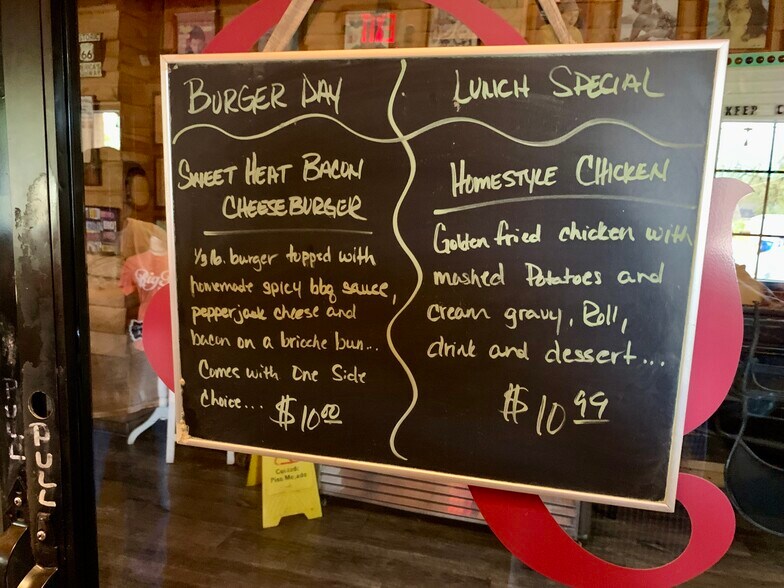 BURGER DAY
SWEET HEAT BACON
CHEESEBURGER
1/3 lb. burger topped with
homemade spicy bbq sauce,
pepperjack cheese and
bacon on a brioche bun...
Comes with One Side
Choice... $10.00
LUNCH SPECIAL
HOMESTYLE CHICKEN
Golden fried chicken with
mashed Potatoes and
cream gravy, Roll,
drink and dessert...
$10.99
PULL
PULL
66
KEEP